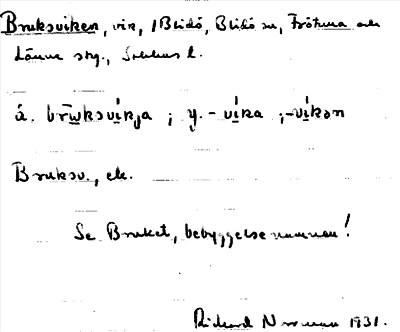 Bruksviken, vik, i Blidö, Blidö sn, Frötuna och
Länna skg., Sthlms l.
å. brω̄ksvikja ; y. -vika ; -vikən
Bruksv., etc.
Se Bruket, bebyggelsenamnen!
Rickard Norman 1931.